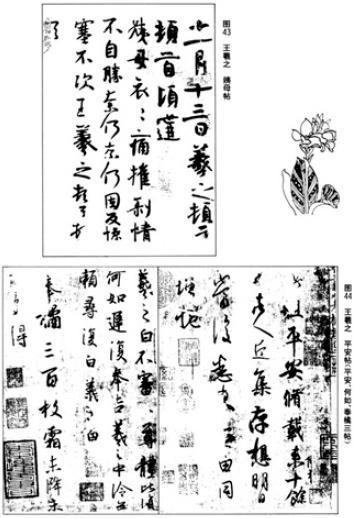 图43 王羲之 姨母帖
十一月十三日羲之頓首
頓首頃遘
姨母哀哀痛摧剝情
不自勝奈何奈何因反慘
塞不次王羲之頓首頓
首
图44 王羲之 平安帖(平安、何如、奉橘三帖)
此粗平安脩載來十餘
日諸人近集存想明
日當復悉來無由同
增慨
羲之白不審尊體比復
何如遲復奉告羲之中冷無
賴尋復白羲之白
奉橘三百枚霜未降未
可多得